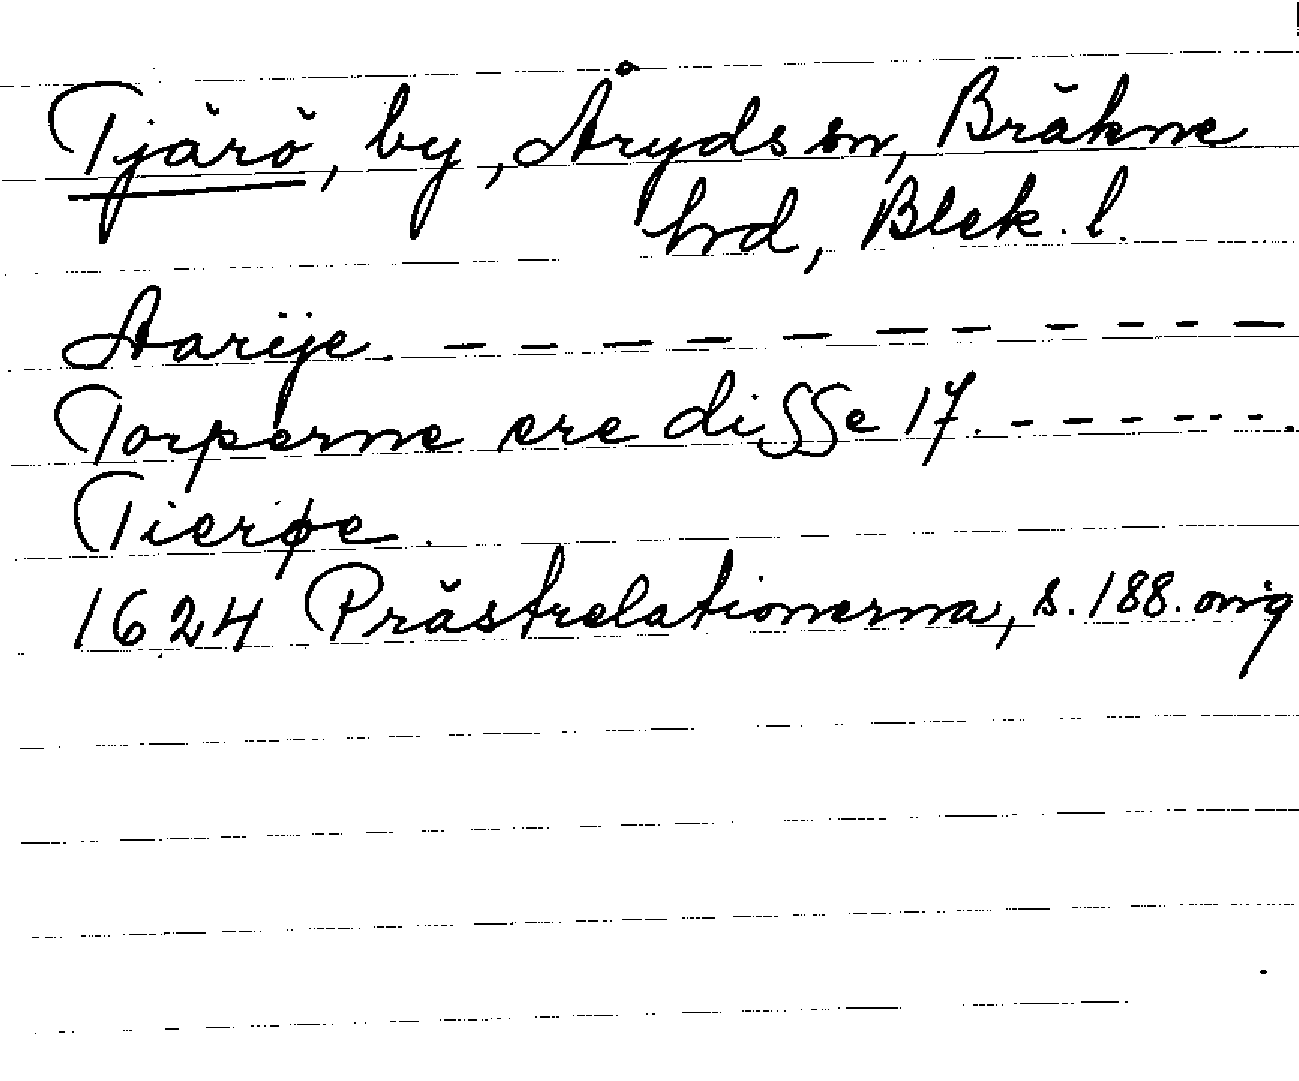 Tjärö, by, Åryds sn, Bräkne
hrd, Blek. l.
Aarije. — — — — — — — — — — —
Torperne ere disse 17. - - - - - - - .
Tierøe.
1624 Prästrelationerna, s. 188. orig